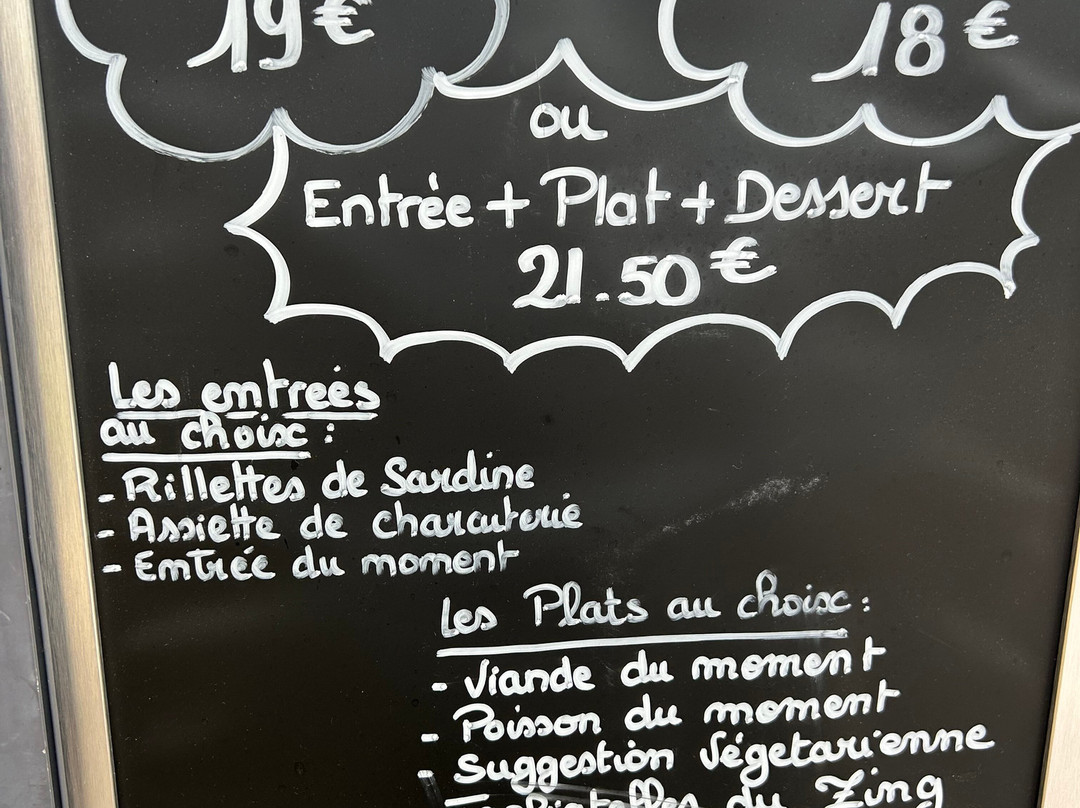 19€
18€
ou
Entrée + Plat + Dessert
21.50€
Les entrées
au choix :
- Rillettes de Sardine
- Assiette de charcuterie
- Entrée du moment
Les Plats au choix :
- Viande du moment
- Poisson du moment
- Suggestion Végetarienne
du Zing